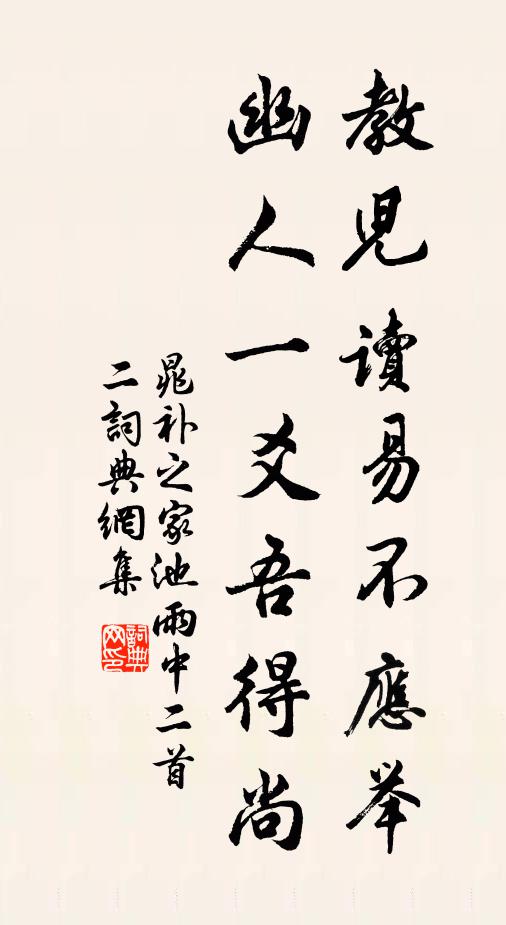 教児读易不應举
幽人一爻吾得尚
晁补之家池雨中二首
二詞典網集
詞典
网印